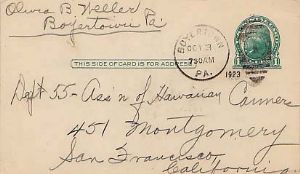 Olivia B Keller
Boyertown Pa.
THIS SIDE OF CARD IS FOR ADDRESS
BOYERTOWN
OCT
730AM
1923
PA.
Dept 55 - Ass'n of Hawaiian Canners
451 Montgomery
San Francisco
California